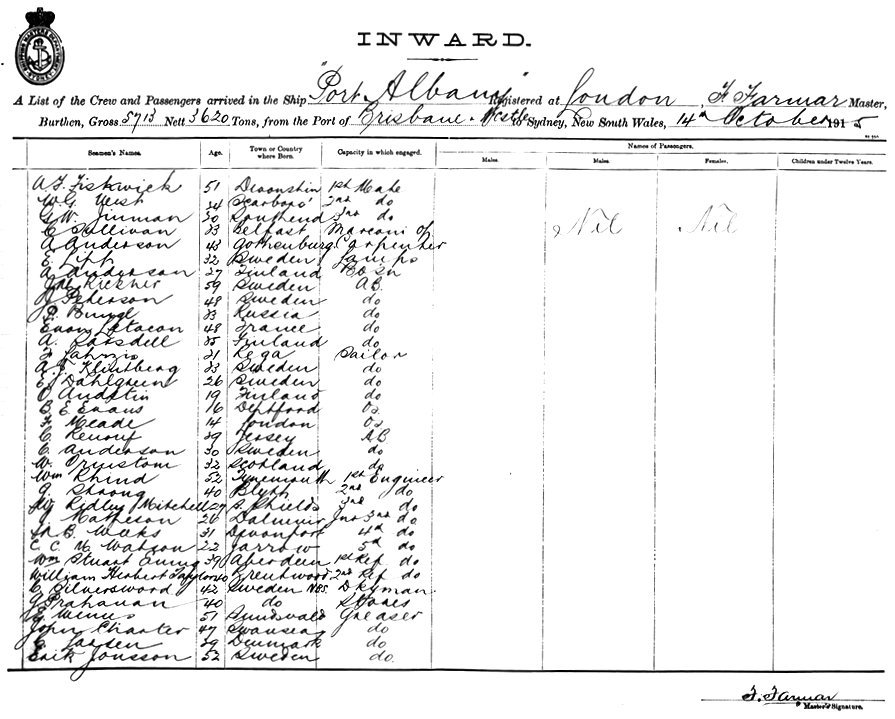 INWARD.
A List of the Crew and Passengers arrived in the Ship "Port Albany" Registered at London, F. Farmar Master,
Burthen, Gross 5713 Nett 3620 Tons, from the Port of Brisbane to Sydney, New South Wales, 14th October 1915
Names of Passengers.
Seamen's Names. Age. Town or Country where Born. Capacity in which engaged. Males. Males. Females. Children under Twelve Years.
A. Fiskwick 51 Devonshire 1st Mate
W.G. West 34 Scarboro' 2nd do
G.W. Jinman 30 Southend 3rd do
C Sullivan 23 Belfast Marconi op Nil Nil
A Anderson 43 Gothenburg Carpenter
E. 32 Sweden Lamps
A. Anderson 27 Finland Bo'sn
59 Sweden AB
Peterson 48 Sweden do
33 Russia do
48 France do
A. Ramsdell 35 Finland do
21 Sailor
A.J. Klintberg 23 Sweden do
E Dahlgreen 26 Sweden do
19 Finland do
B. E Evans 16 Deptford Os
Meade 14 London Os
C. Renouf 39 Jersey AB
C. Anderson 30 Sweden do
W. Ormston 32 Scotland do
Wm Rhind 52 Tynemouth 1st Engineer
Strong 40 Blyth 2nd do
Ridley Mitchell 27 S. Shields 3rd do
J Matheson 26 Dalmuir Jnr 3rd do
B. Weeks 31 Devonport 4th do
C. C. M Watson 22 Jarrow 5th do
Wm Stuart 39 Aberdeen 1st Ref do
William Herbert Taylor 40 Brentwood 2nd Ref do
C. Silversword 42 Sweden Dkyman
40 do Stores
51 Sundsvald Greaser
John Charter 47 Swansea do
C Larsen 39 Denmark do
Erik Jonsson 52 Sweden do.
F. Farmar
Master's Signature.